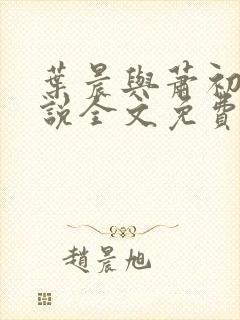 葉晨與蕭初
說全文免費
趙晨旭